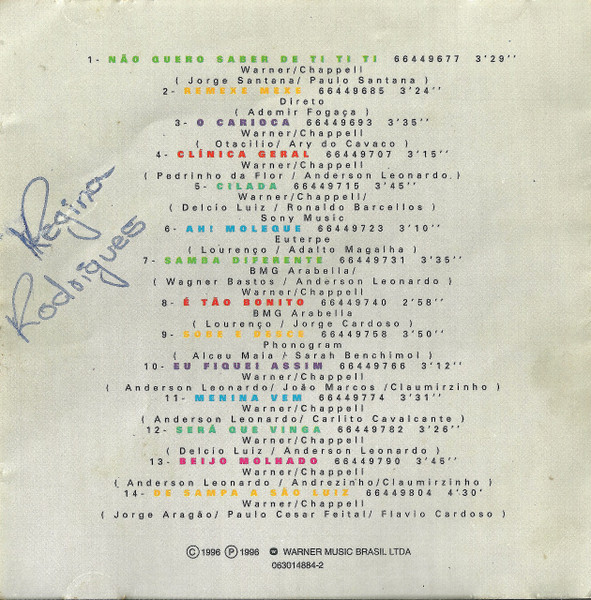 1- NÃO QUERO SABER DE TI TI TI 66449677 3'29''
Warner/Chappell
( Jorge Santana/ Paulo Santana )
2- REMEXE MEXE 66449685 3'24''
Direto
( Ademir Fogaça )
3- O CARIOCA 66449693 3'35''
Warner/Chappell
( Otacilio/ Ary do Cavaco )
4- CLÍNICA GERAL 66449707 3'15''
Warner/Chappell
( Pedrinho da Flor / Anderson Leonardo.)
5- CILADA 66449715 3'45''
Warner/Chappell/
( Delcio Luiz / Ronaldo Barcellos )
Sony Music
6- AH! MOLEQUE 66449723 3'10''
Euterpe
( Lourenço / Adalto Magalha )
7- SAMBA DIFERENTE 66449731 3'35''
BMG Arabella/
( Wagner Bastos / Anderson Leonardo )
Warner/Chappell
8- É TÃO BONITO 66449740 2'58''
BMG Arabella
( Lourenço / Jorge Cardoso )
9- SOBE E DESCE 66449758 3'50''
Phonogram
( Alceu Maia / Sarah Benchimol )
10- EU FIQUEI ASSIM 66449766 3'12''
Warner/Chappell
( Anderson Leonardo/ João Marcos /Claumirzinho )
11- MENINA VEM 66449774 3'31''
Warner/Chappell
( Anderson Leonardo/ Carlito Cavalcante )
12- SERÁ QUE VINGA 66449782 3'26''
Warner/Chappell
( Delcio Luiz / Anderson Leonardo )
13- BEIJO MOLHADO 66449790 3'45''
Warner/Chappell
( Anderson Leonardo / Andrezinho/Claumirzinho )
14- DE SAMPA A SÃO LUIZ 66449804 4'30'
Warner/Chappell
( Jorge Aragão/ Paulo Cesar Feital/ Flavio Cardoso )
Regina
Rodrigues
© 1996 ℗ 1996 WARNER MUSIC BRASIL LTDA
063014884-2